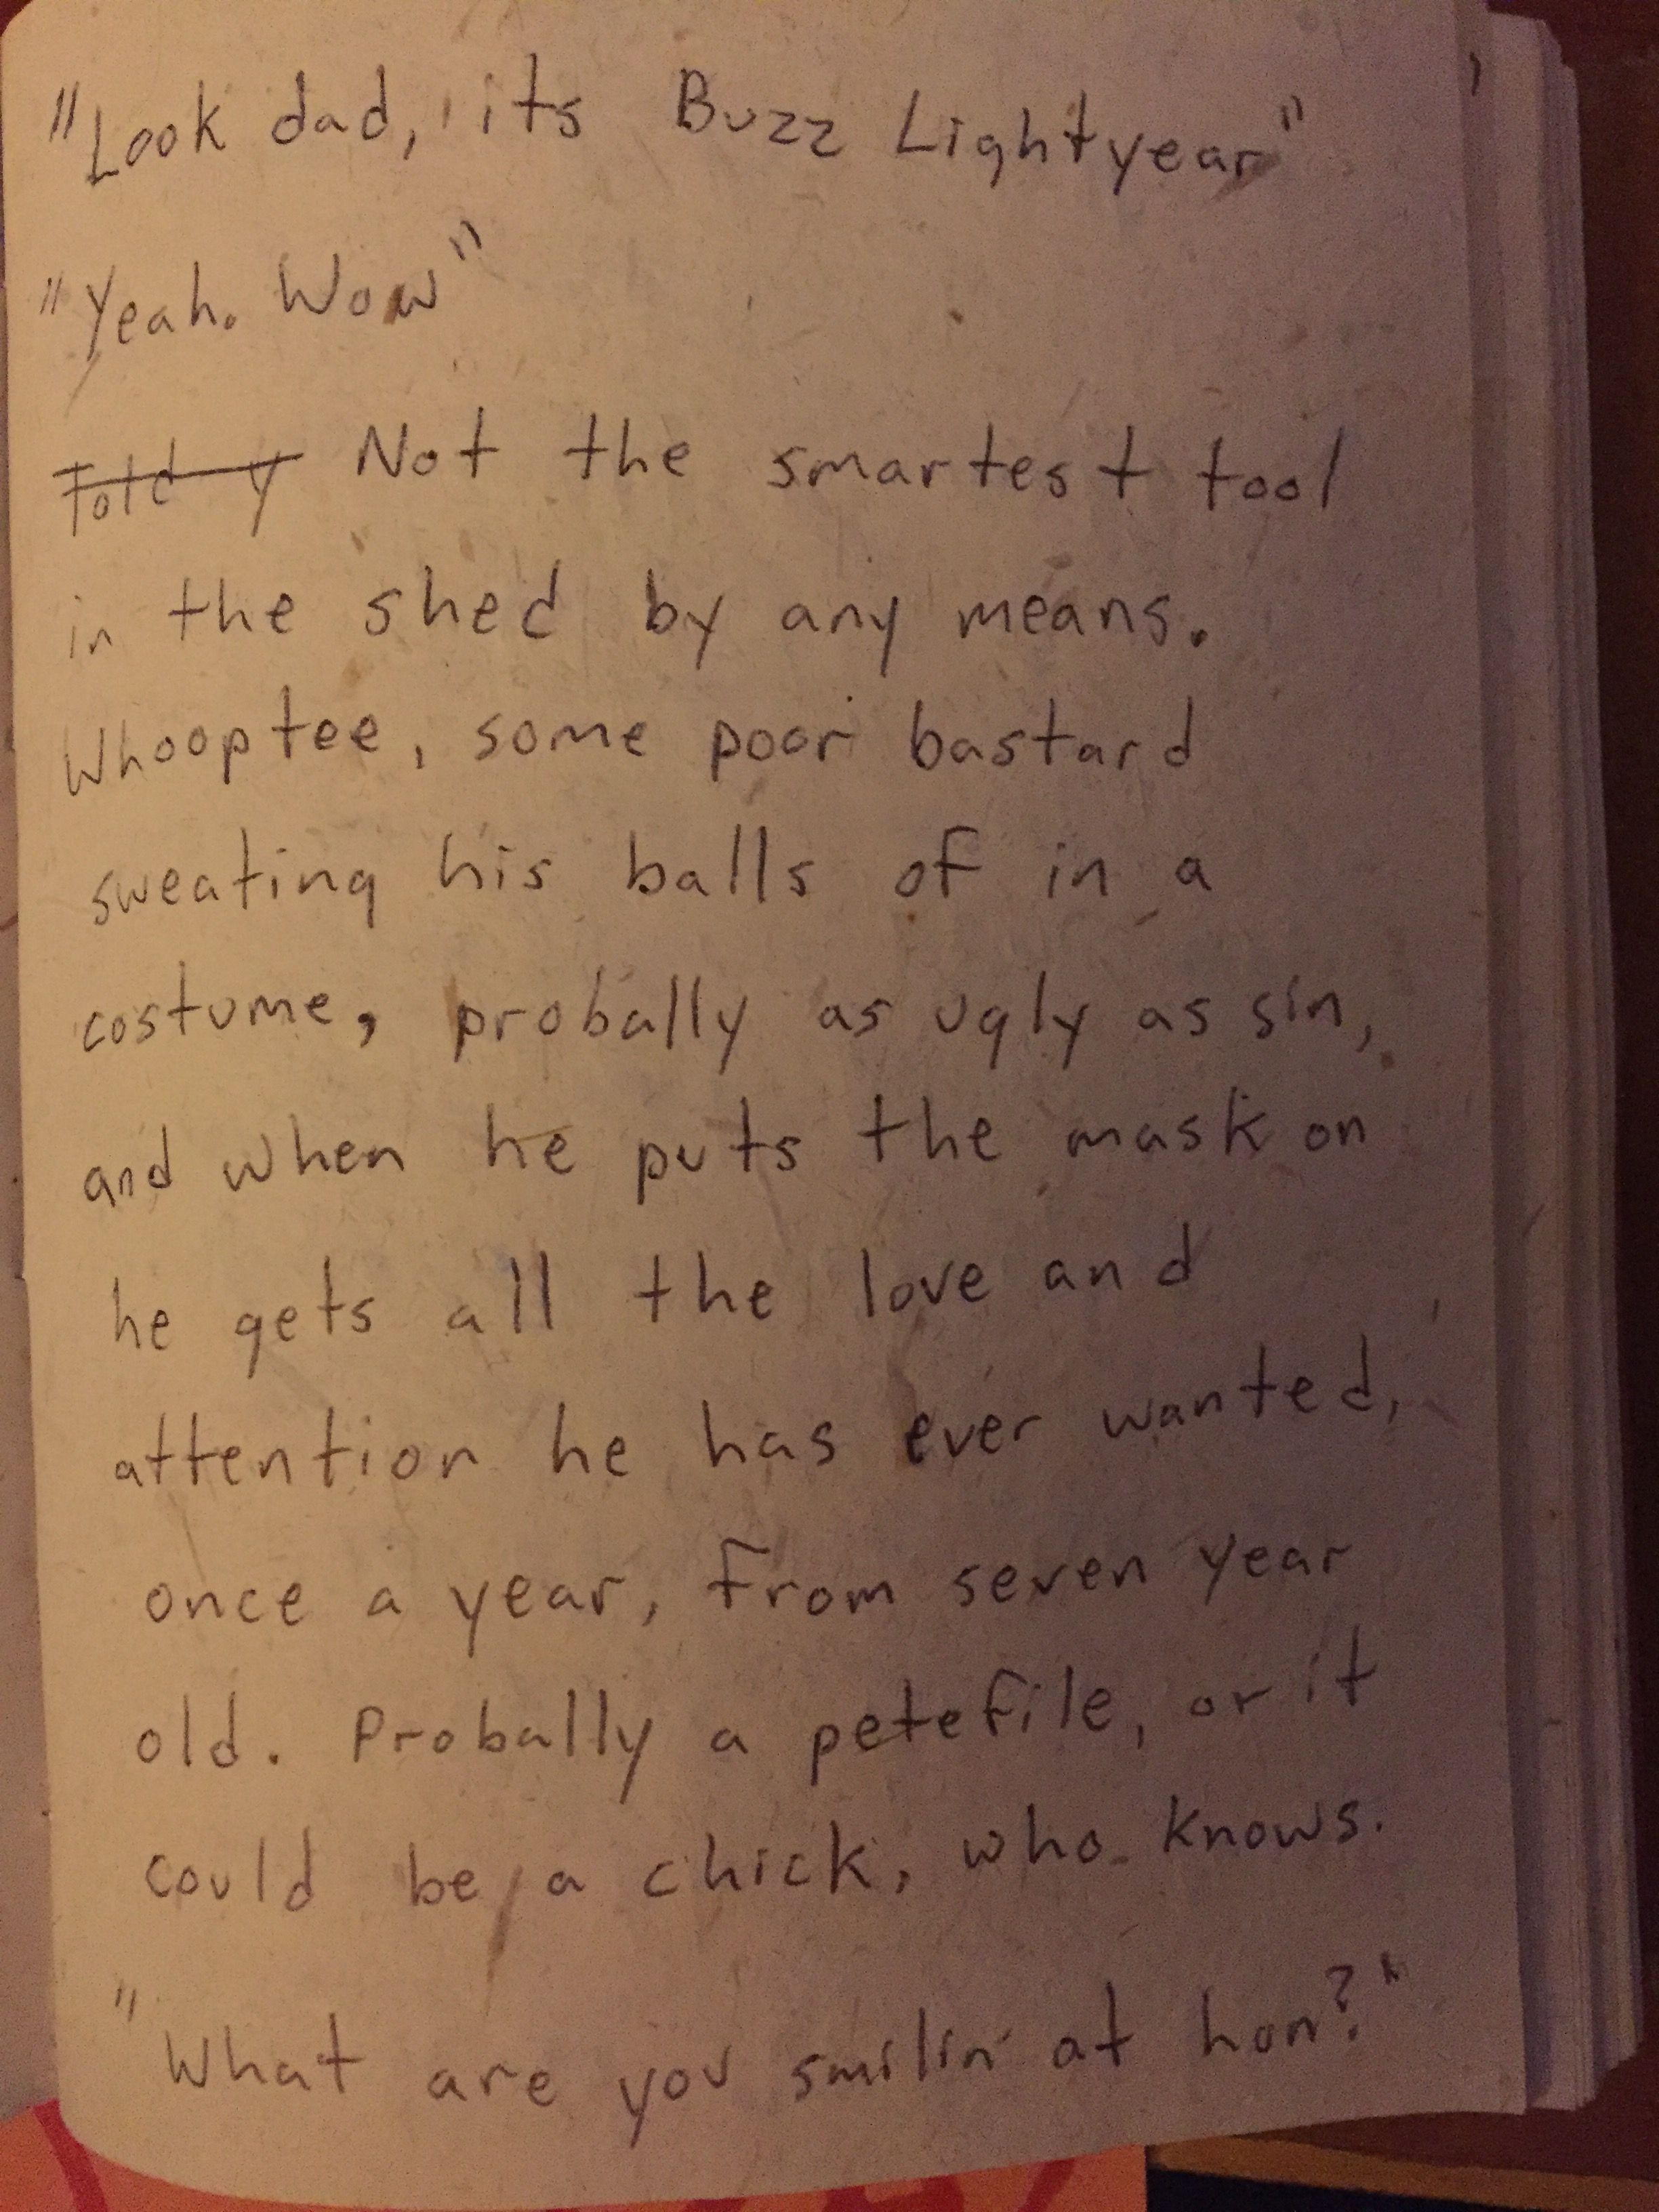 "Look dad, its Buzz Lightyear"
"Yeah. Wow"
Told y Not the smartest tool
in the shed by any means.
Whooptee, some poor bastard
sweating his balls of in a
costume, probally as ugly as sin,
and when he puts the mask on
he gets all the love and
attention he has ever wanted,
once a year, from seven year
old. Probally a petefile, or it
could be a chick, who knows.
"What are you smilin at hon?"